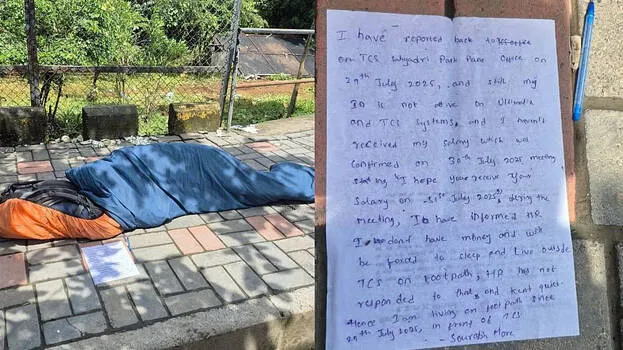 I have reported back to office
on TCS Sahyadri Park Pune Office on
29th July 2025, and still my
ID is not active on Ultimatix
and TCS systems, and I haven't
received my salary which was
confirmed on 30th July 2025 meeting,
stating "I hope you receive your
salary on 31st July 2025", during the
meeting, I have informed HR
I don't have money and will
be forced to sleep and live outside
TCS on footpath, HR has not
responded to that, and kept quiet.
Hence I am living on footpath since
29th July 2025, in front of TCS
- Saurabh More